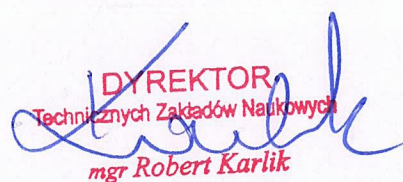 DYREKTOR
Technicznych Zakładów Naukowych
mgr Robert Karlik